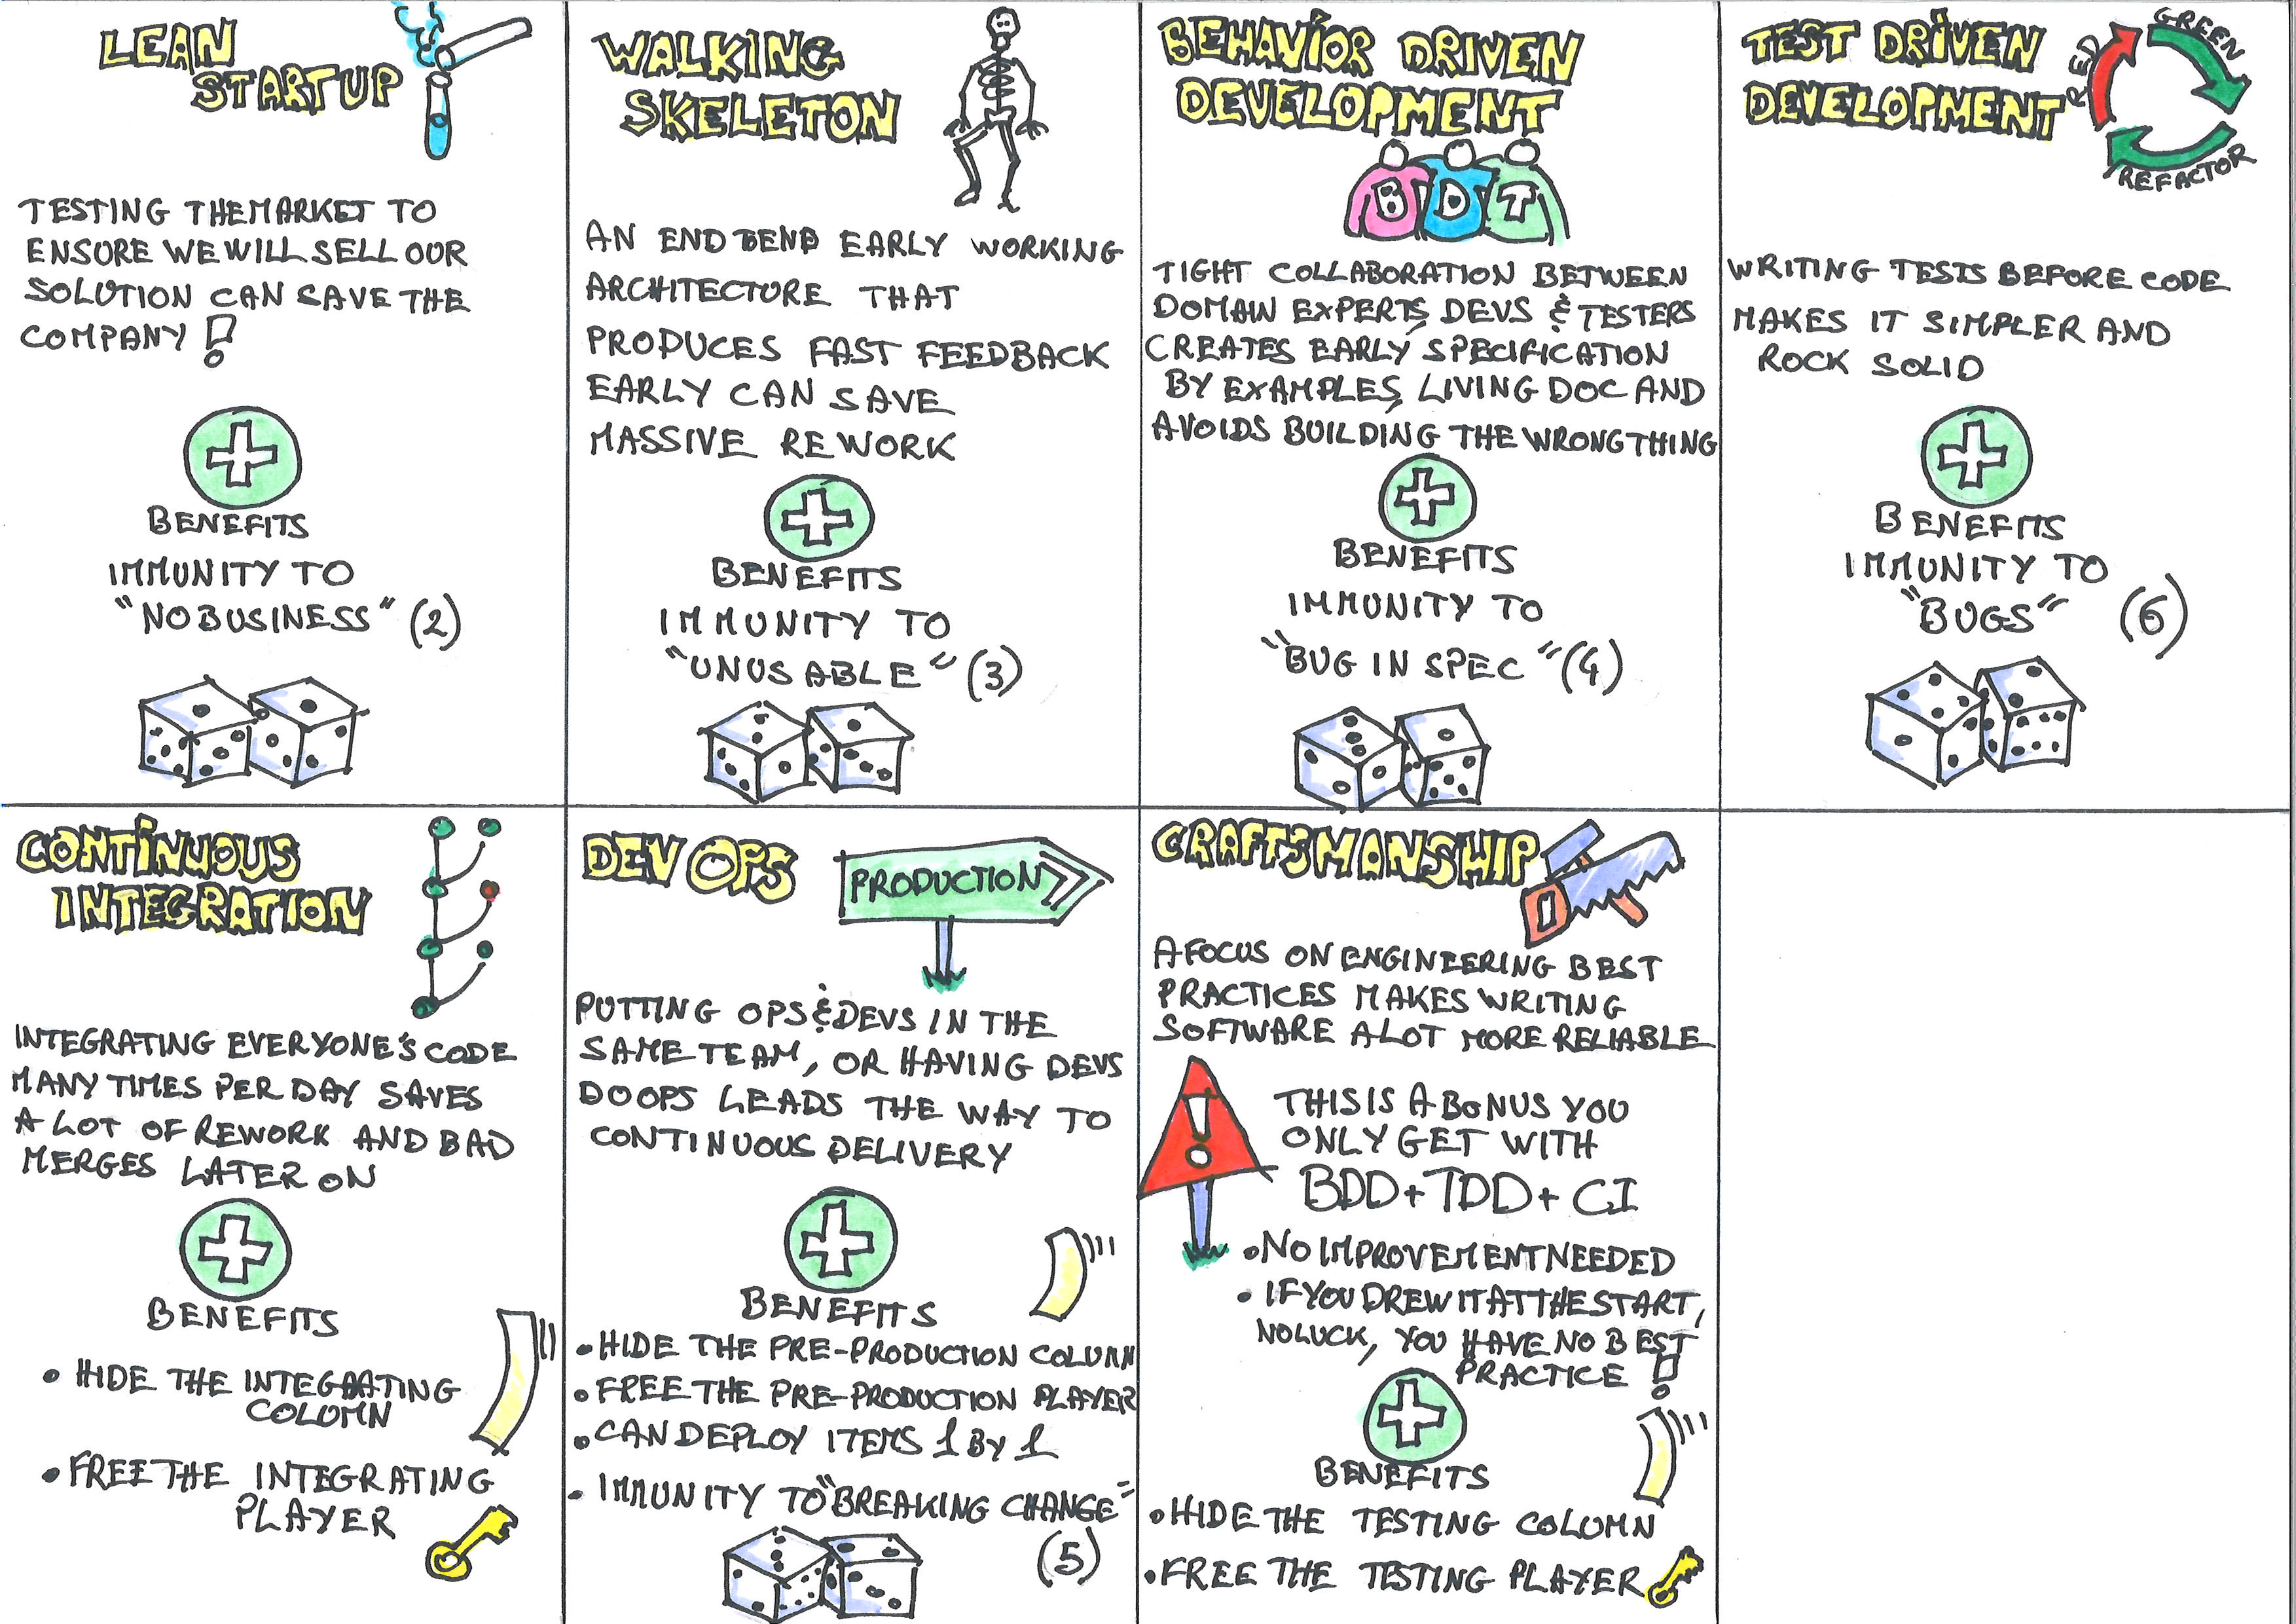 LEAN
STARTUP
TESTING THE MARKET TO
ENSURE WE WILL SELL OUR
SOLUTION CAN SAVE THE
COMPANY!
BENEFITS
IMMUNITY TO
"NO BUSINESS" (2)
WALKING
SKELETON
AN END 2 END EARLY WORKING
ARCHITECTURE THAT
PRODUCES FAST FEEDBACK
EARLY CAN SAVE
MASSIVE REWORK
BENEFITS
IMMUNITY TO
"UNUSABLE" (3)
BEHAVIOR DRIVEN
DEVELOPMENT
B D T
TIGHT COLLABORATION BETWEEN
DOMAIN EXPERTS, DEVS & TESTERS
CREATES EARLY SPECIFICATION
BY EXAMPLES, LIVING DOC AND
AVOIDS BUILDING THE WRONG THING
BENEFITS
IMMUNITY TO
"BUG IN SPEC" (4)
TEST DRIVEN
DEVELOPMENT
RED
GREEN
REFACTOR
WRITING TESTS BEFORE CODE
MAKES IT SIMPLER AND
ROCK SOLID
BENEFITS
IMMUNITY TO
"BUGS" (6)
CONTINUOUS
INTEGRATION
INTEGRATING EVERYONE'S CODE
MANY TIMES PER DAY SAVES
A LOT OF REWORK AND BAD
MERGES LATER ON
BENEFITS
• HIDE THE INTEGRATING
COLUMN
• FREE THE INTEGRATING
PLAYER
DEV OPS
PRODUCTION
PUTTING OPS & DEVS IN THE
SAME TEAM, OR HAVING DEVS
DO OPS LEADS THE WAY TO
CONTINUOUS DELIVERY
BENEFITS
• HIDE THE PRE-PRODUCTION COLUMN
• FREE THE PRE-PRODUCTION PLAYER
• CAN DEPLOY ITEMS 1 BY 1
• IMMUNITY TO "BREAKING CHANGE"
(5)
CRAFTSMANSHIP
A FOCUS ON ENGINEERING BEST
PRACTICES MAKES WRITING
SOFTWARE A LOT MORE RELIABLE
THIS IS A BONUS YOU
ONLY GET WITH
BDD + TDD + CI
• NO IMPROVEMENT NEEDED
• IF YOU DREW IT AT THE START,
NO LUCK, YOU HAVE NO BEST
PRACTICE!
BENEFITS
• HIDE THE TESTING COLUMN
• FREE THE TESTING PLAYER